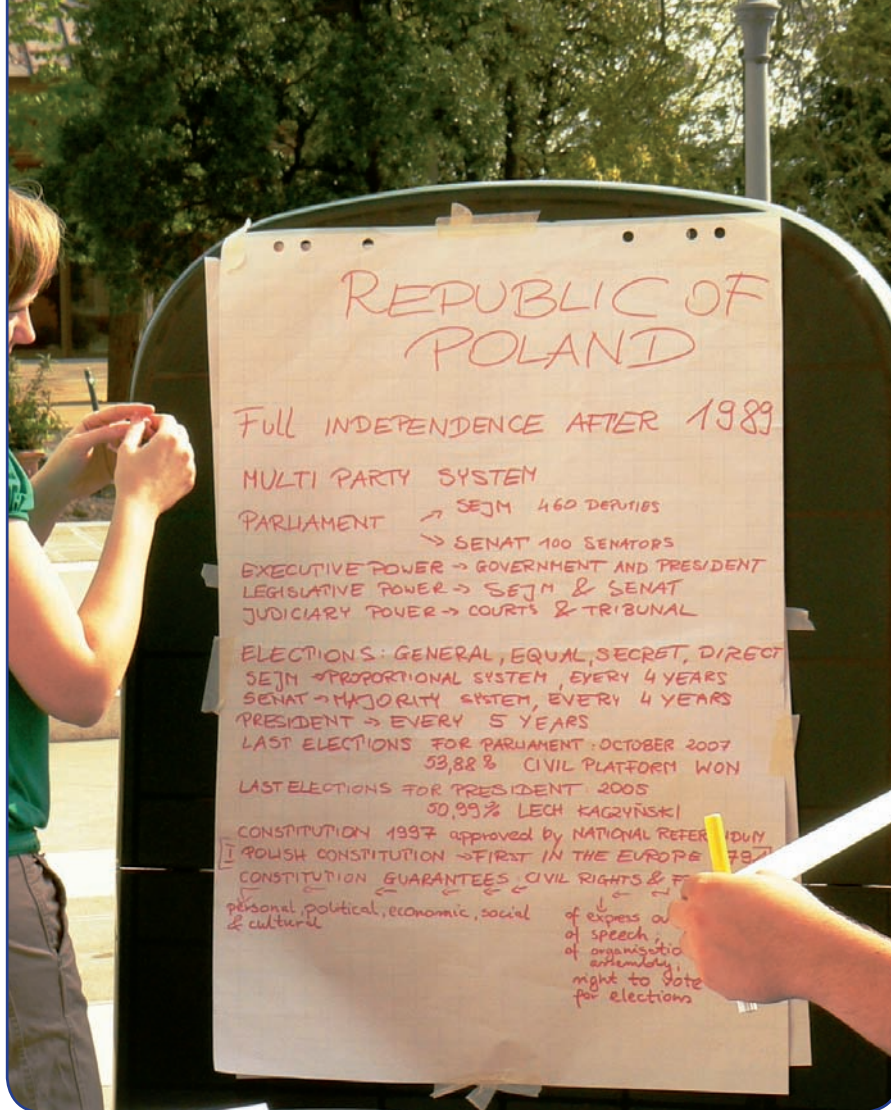 REPUBLIC OF
POLAND
Full INDEPENDENCE AFTER 1989
MULTI PARTY SYSTEM
PARLIAMENT ↗ SEJM 460 DEPUTIES
↘ SENAT 100 SENATORS
EXECUTIVE POWER → GOVERNMENT AND PRESIDENT
LEGISLATIVE POWER → SEJM & SENAT
JUDICIARY POWER → COURTS & TRIBUNAL
ELECTIONS: GENERAL, EQUAL, SECRET, DIRECT
SEJM → PROPORTIONAL SYSTEM, EVERY 4 YEARS
SENAT → MAJORITY SYSTEM, EVERY 4 YEARS
PRESIDENT → EVERY 5 YEARS
LAST ELECTIONS FOR PARLIAMENT: OCTOBER 2007
53,88% CIVIL PLATFORM WON
LAST ELECTIONS FOR PRESIDENT 2005
50,99% LECH KACZYŃSKI
CONSTITUTION 1997 approved by NATIONAL REFERENDUM
I POLISH CONSTITUTION → FIRST IN THE EUROPE
CONSTITUTION GUARANTEES: CIVIL RIGHTS &
personal, political, economic, social
& cultural
of express
of speech,
of
assembly,
right to vote
for elections